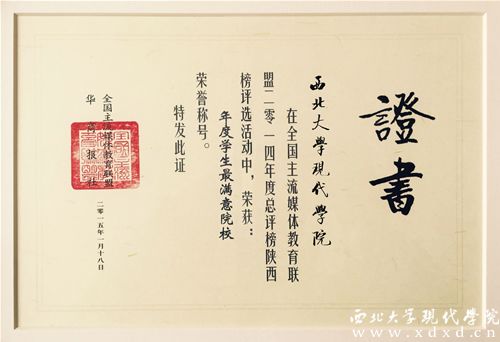 證書
西北大學現代學院
在全国主流媒体教育联
盟二零一四年度总评榜陕西
榜评选活动中，荣获：
年度学生最满意院校
荣誉称号。
特发此证
全国主流媒体教育联盟
华商报社
二零一五年一月十八日
西北大学现代学院
www.xdxd.cn